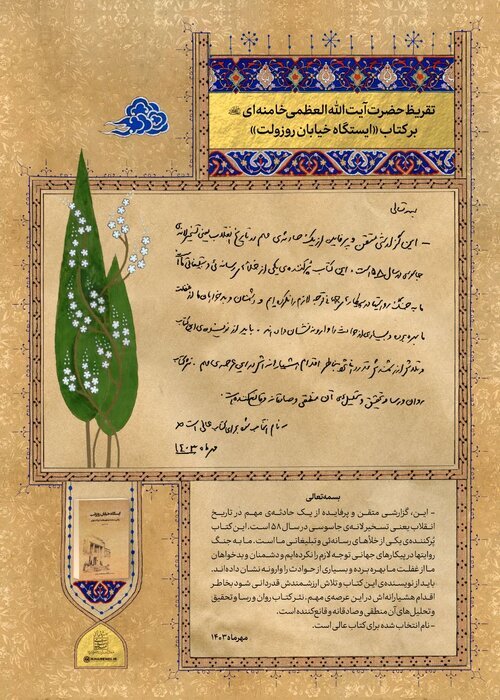 تقریظ حضرت آیت‌الله‌العظمی خامنه‌ای
بر کتاب «ایستگاه خیابان روزولت»
بسمه‌تعالی
- این گزارشی متقن و پرفایده از یک حادثه‌ی مهم در تاریخ انقلاب یعنی تسخیر لانه‌ی
جاسوسی در سال ۵۸ است. این کتاب پُرکننده‌ی یکی از خلأهای رسانه‌ئی و تبلیغاتی ما است.
ما به جنگ روایتها در پیکارهای جهانی توجه لازم را نکرده‌ایم و دشمنان و بدخواهان ما از غفلت
ما بهره برده و بسیاری از حوادث را وارونه نشان داده‌اند. باید از نویسنده‌ی این کتاب
و تلاش ارزشمندش قدردانی شود بخاطر اقدام هشیارانه‌اش در این عرصه‌ی مهم. نثر کتاب
روان و رسا و تحقیق و تحلیل‌های آن منطقی و صادقانه و قانع‌کننده است.
- نام انتخاب شده برای کتاب عالی است
مهرماه ۱۴۰۳
ایستگاه خیابان روزولت
بسمه‌تعالی
- این، گزارشی متقن و پرفایده از یک حادثه‌ی مهم در تاریخ
انقلاب یعنی تسخیر لانه‌ی جاسوسی در سال ۵۸ است. این کتاب
پُرکننده‌ی یکی از خلأهای رسانه‌ئی و تبلیغاتی ما است. ما به جنگ
روایتها در پیکارهای جهانی توجه لازم را نکرده‌ایم و دشمنان و بدخواهان
ما از غفلت ما بهره برده و بسیاری از حوادث را وارونه نشان داده‌اند.
باید از نویسنده‌ی این کتاب و تلاش ارزشمندش قدردانی شود بخاطر
اقدام هشیارانه‌اش در این عرصه‌ی مهم. نثر کتاب روان و رسا و تحقیق
و تحلیل‌های آن منطقی و صادقانه و قانع‌کننده است.
- نام انتخاب شده برای کتاب عالی است.
مهرماه ۱۴۰۳
KHAMENEI.IR